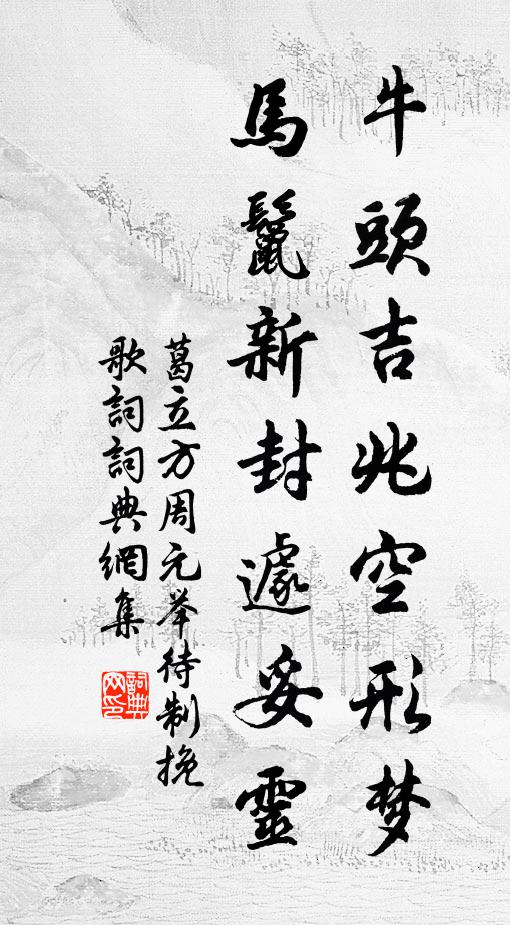 牛頭吉兆空形梦
馬鬣新封遽妥靈
葛立方周元举待制挽
歌詞詞典網集
詞典
网印